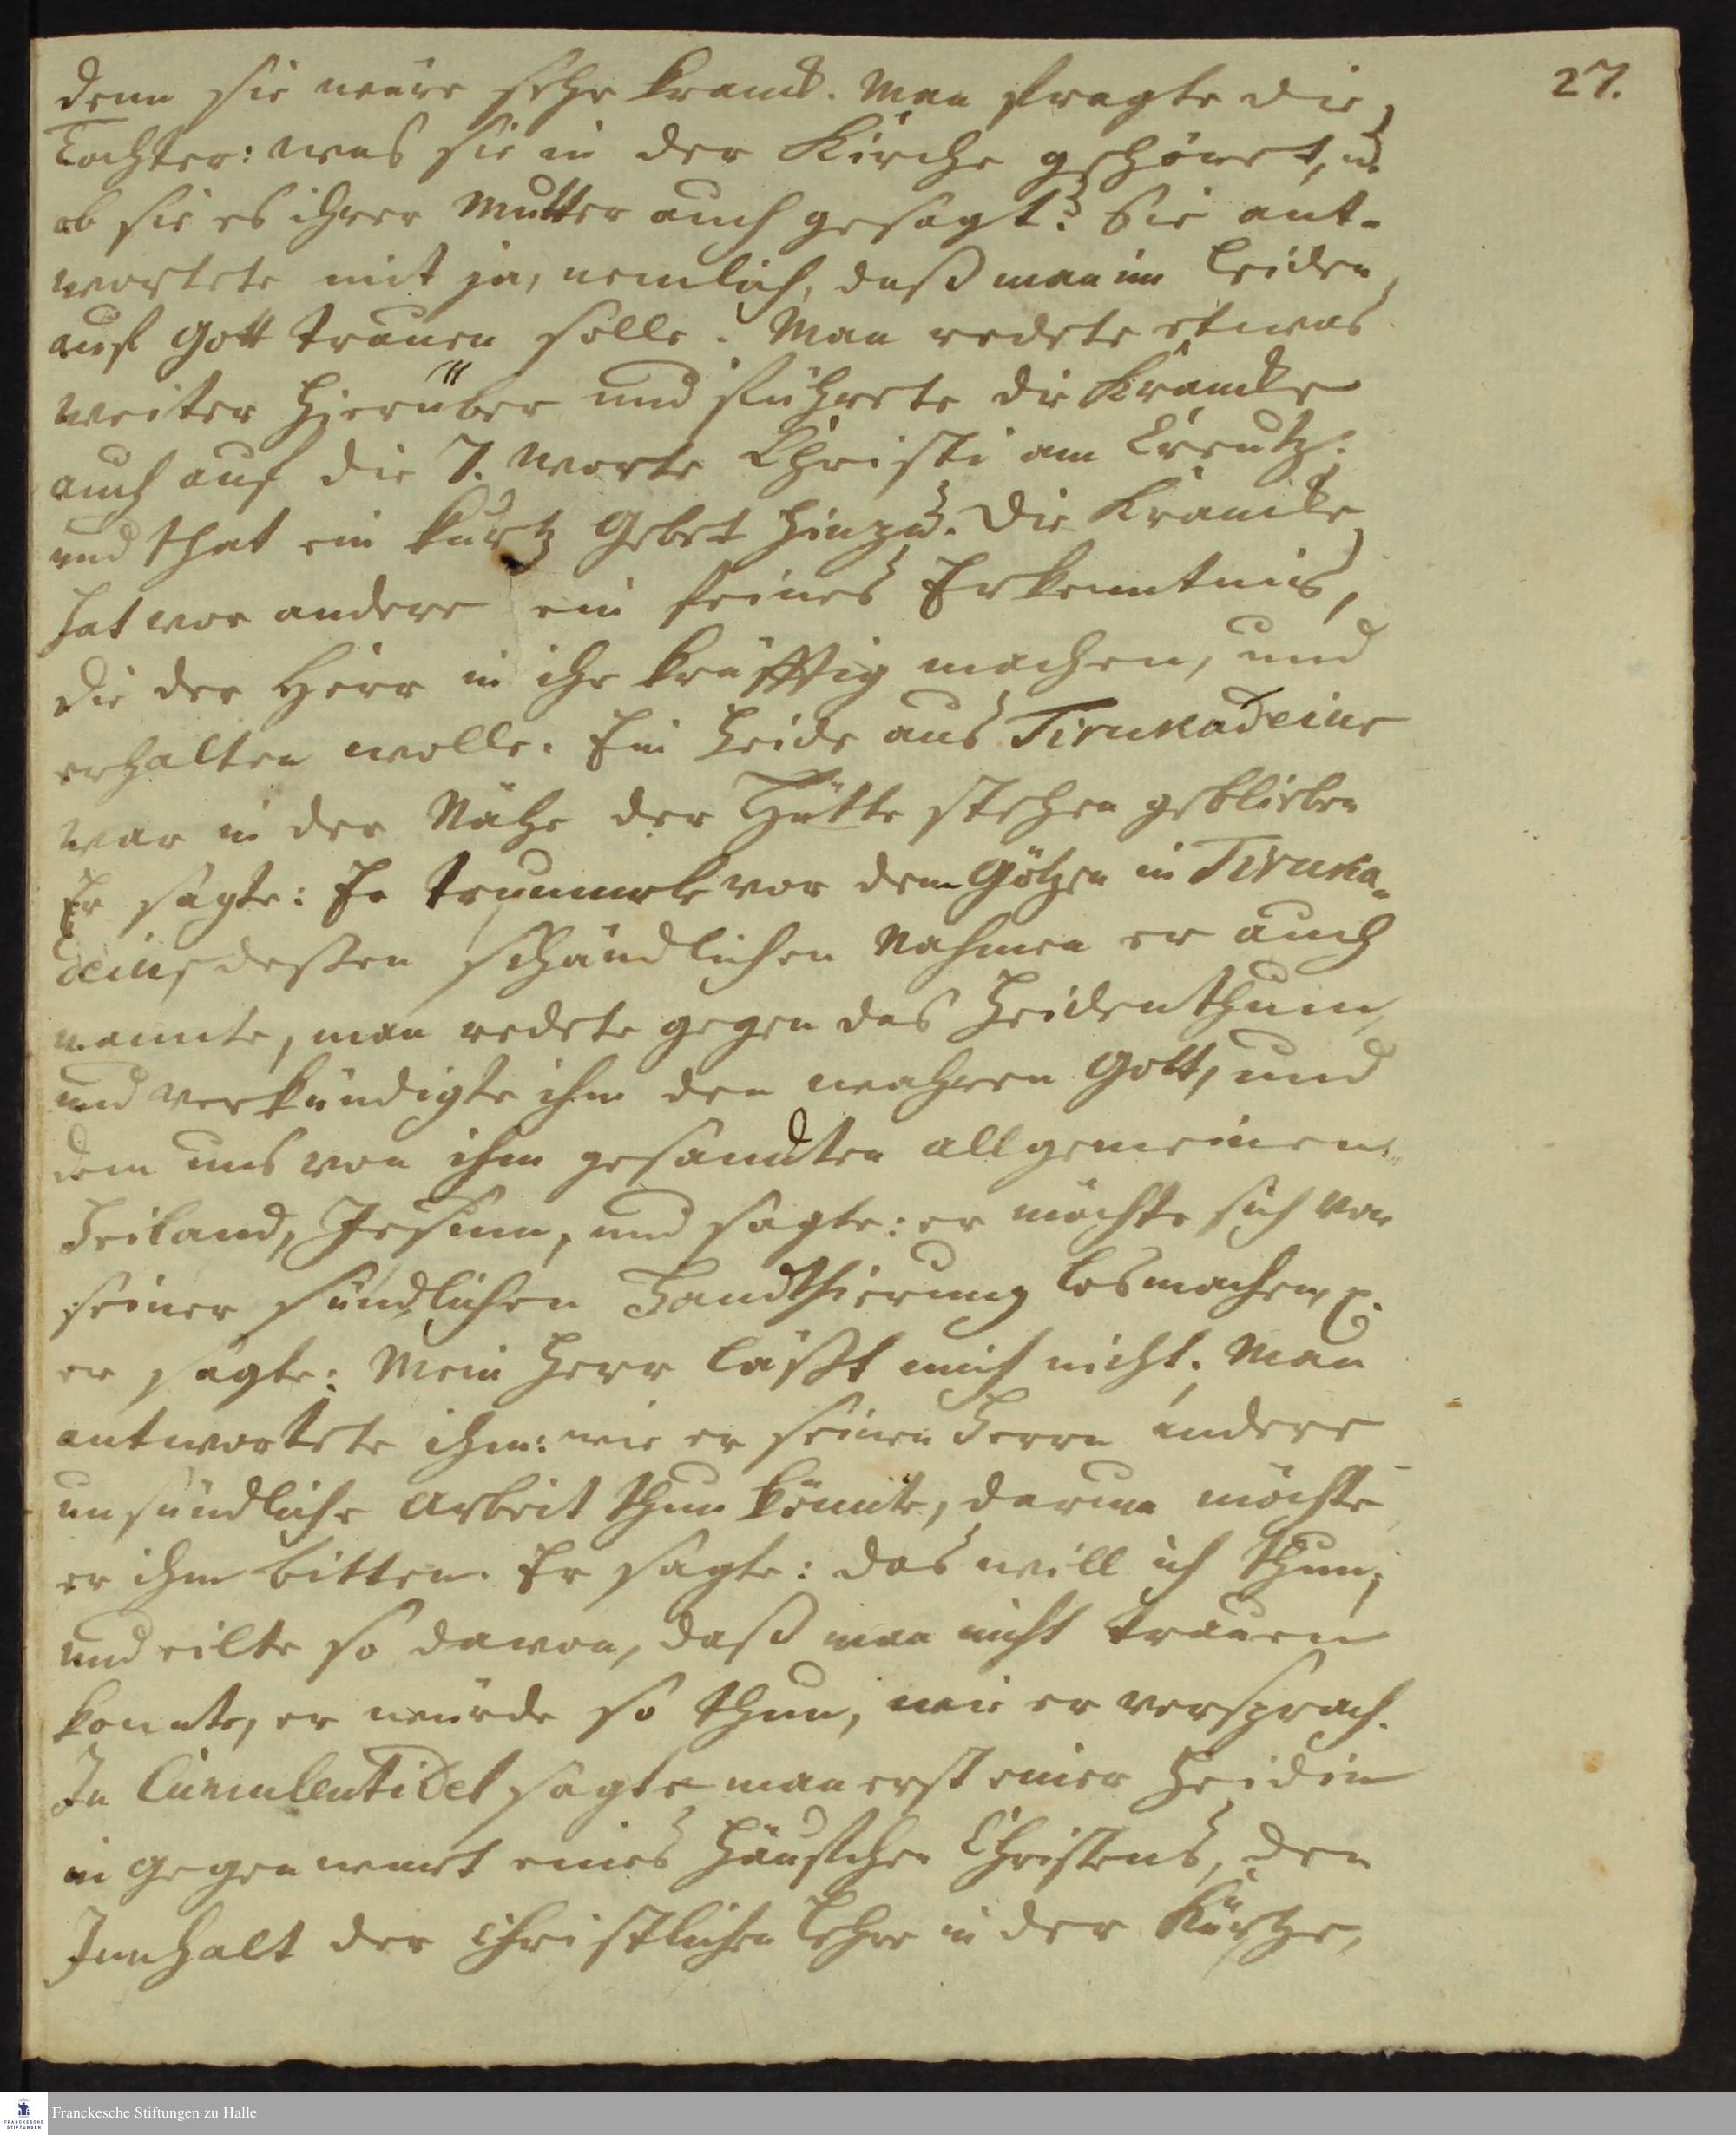 27.
denn sie wäre sehr kranck. Man fragte die
Tochter: was sie in der Kirche gehöret, u.
ob sie es ihrer Mutter auch gesagt? Sie ant-
wortete mit ja, nemlich, daß man im Leiden
auf Gott trauen solle. Man redete etwas
weiter hierüber und führete die Krancke
auch auf die 7. Worte Christi am Creutz:
und that ein kurtz Gebet hinzu. Die Krancke
hat vor andere ein feines Erkenntnis,
die der Herr in ihr kräfftig machen, und
erhalten wolle. Ein Heide aus Tirukadeiur
war in der Nähe der Hütte stehen geblieben
Er sagte: Er trummele vor dem Götzen in Tiruka-
deiur deßen schändlichen Nahmen er auch
nannte, man redete gegen das Heidenthum,
und verkündigte ihm den wahren Gott, und
dem uns von ihm gesandten allgemeinen
Heiland, Jesum, und sagte: er möchte sich von
seiner sündlichen Handthierung losmachen,
er sagte: Mein Herr läßt mich nicht. Man
antwortete ihm: wie er seinen Herrn andere
unsündliche Arbeit thun könnte, darum möchte
er ihm bitten. Er sagte: das will ich thun;
und eilte so davon, daß man nicht trauen
konnte, er würde so thun, wie er versprach.
In sagte man erst einer Heidin
in Gegenwart eines Christens, den
Innhalt der Christlichen Lehre in der Kürtze,
FRANCKESCHE STIFTUNGEN
Franckesche Stiftungen zu Halle